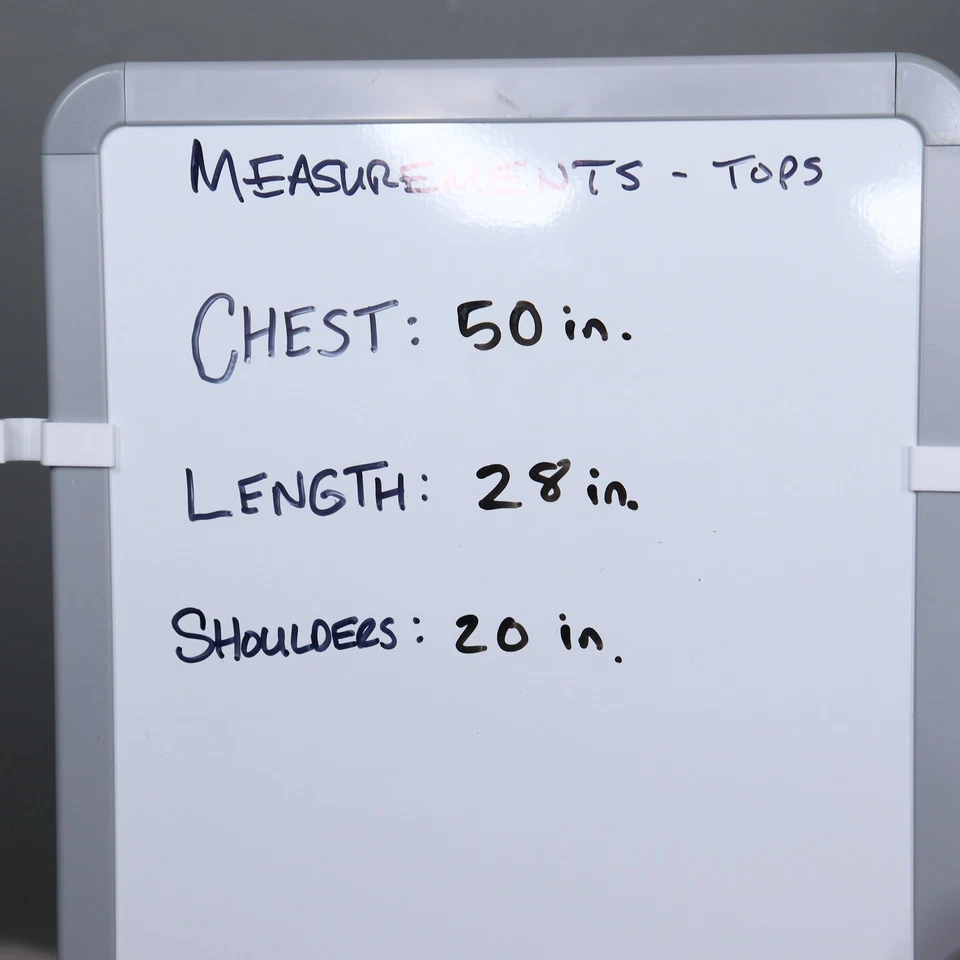 MEASUREMENTS - TOPS
CHEST: 50 in.
LENGTH: 28 in.
SHOULDERS: 20 in.